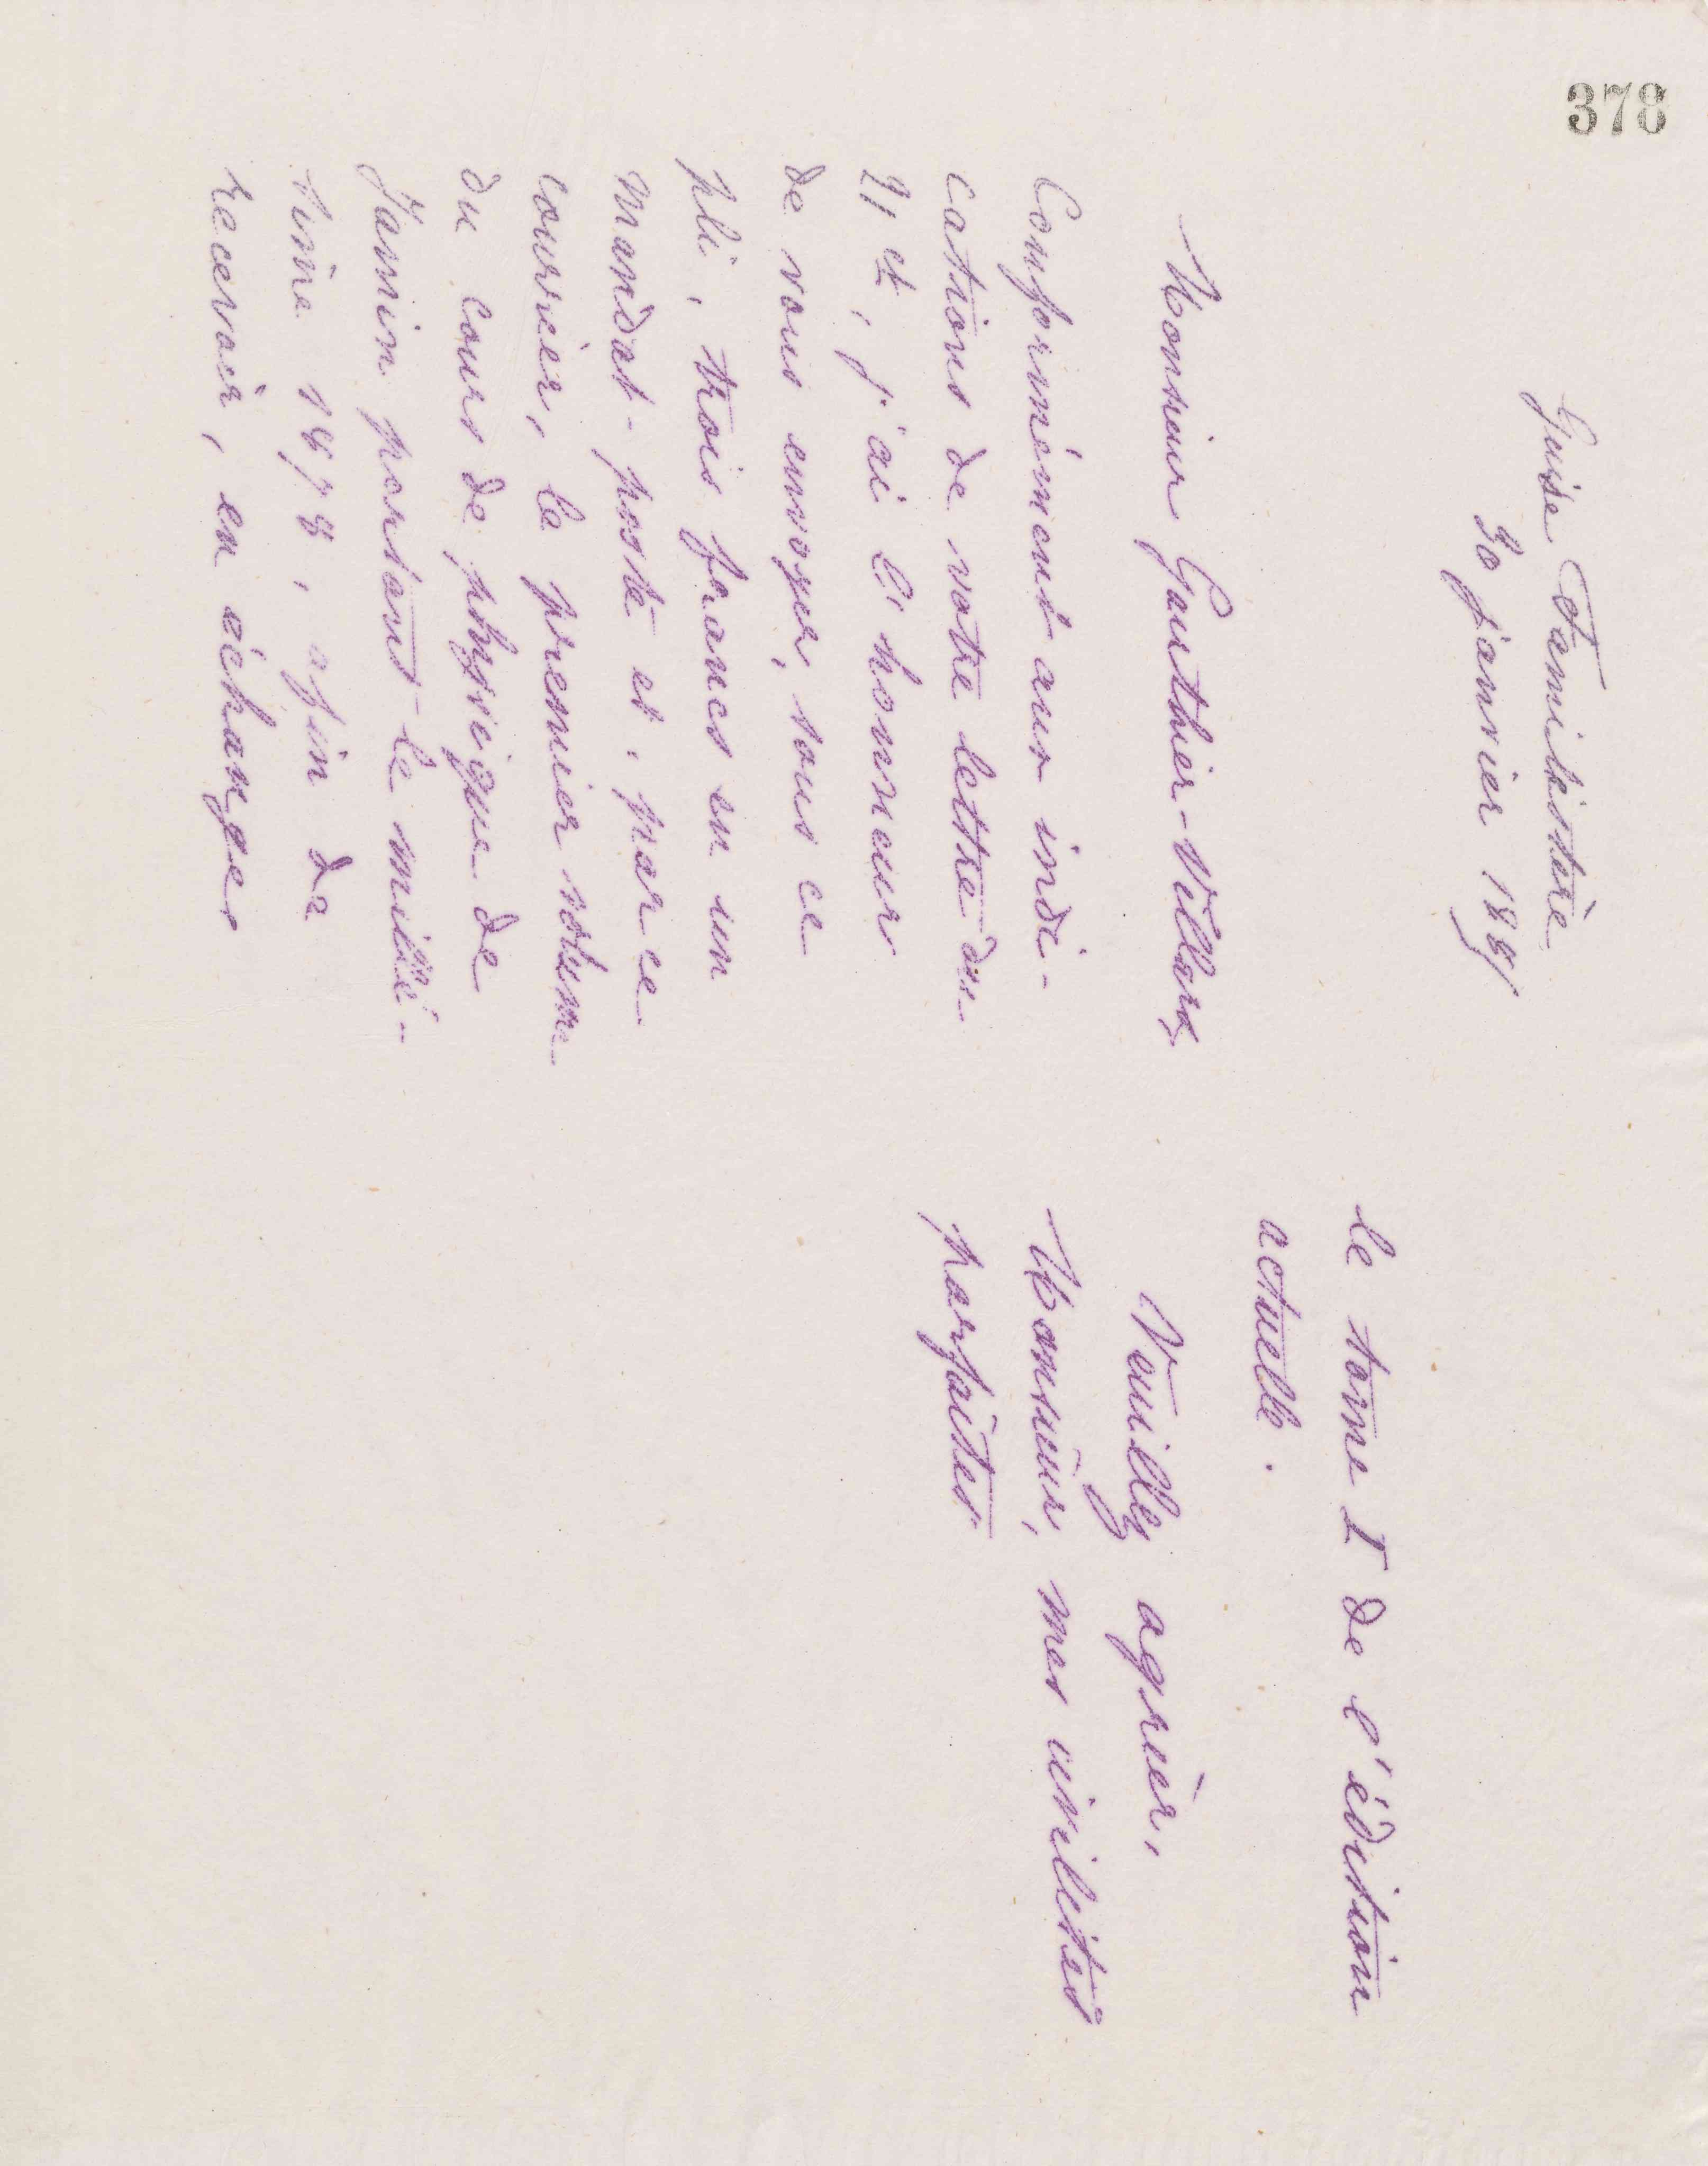 378
Guise Familistère
30 janvier 1891
Monsieur Gauthier-Villars,
Conformément aux indi-
cations de votre lettre du
21 ct, j'ai l'honneur
de vous envoyer, sous ce
pli, trois francs en un
mandat-poste et, par ce
courrier, le premier volume
du cours de physique de
Jamin portant le millé-
sime 1878, afin de
recevoir, en échange,
le tome I de l'édition
actuelle.
Veuillez agréer,
Monsieur, mes civilités
parfaites